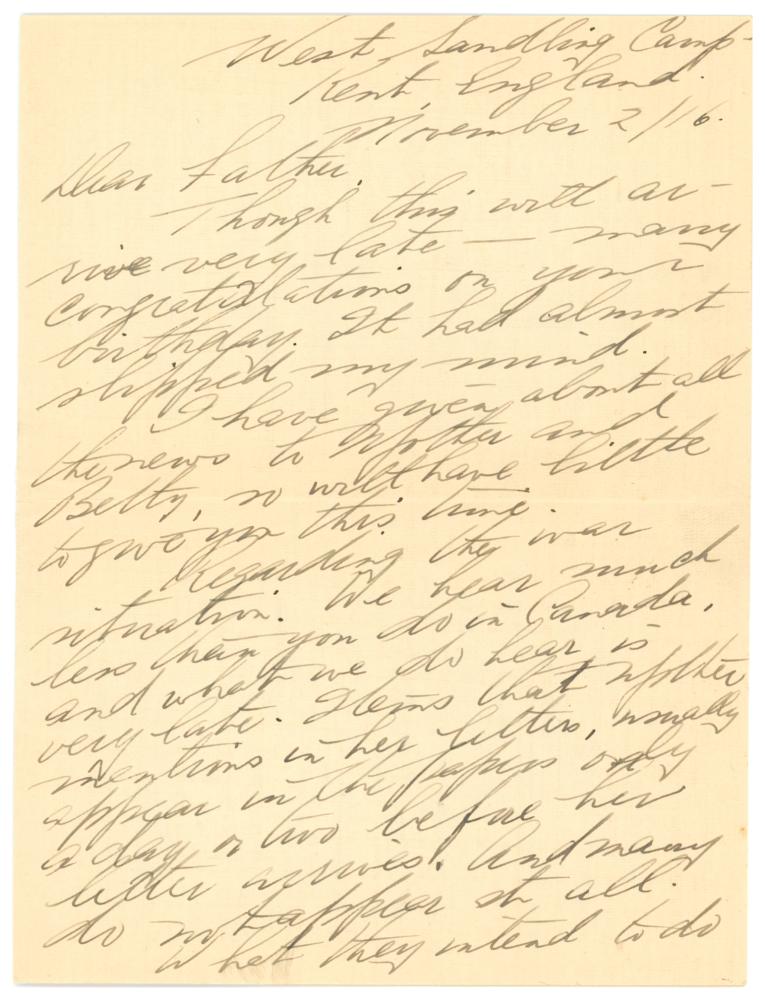 West Sandling Camp
Kent England.
November 2/16.
Dear Father.
Though this will ar-
rive very late — many
congratulations on your
birthday. It had almost
slipped my mind.
I have given about all
the news to Mother and
Betty, so will have little
to give you this time.
Regarding the war
situation. We hear much
less than you do in Canada,
and what we do hear is
very late. Items that Mother
mentions in her letters, usually
appear in the papers only
a day or two before her
letter arrives. And many
do not appear at all.
What they intend to do